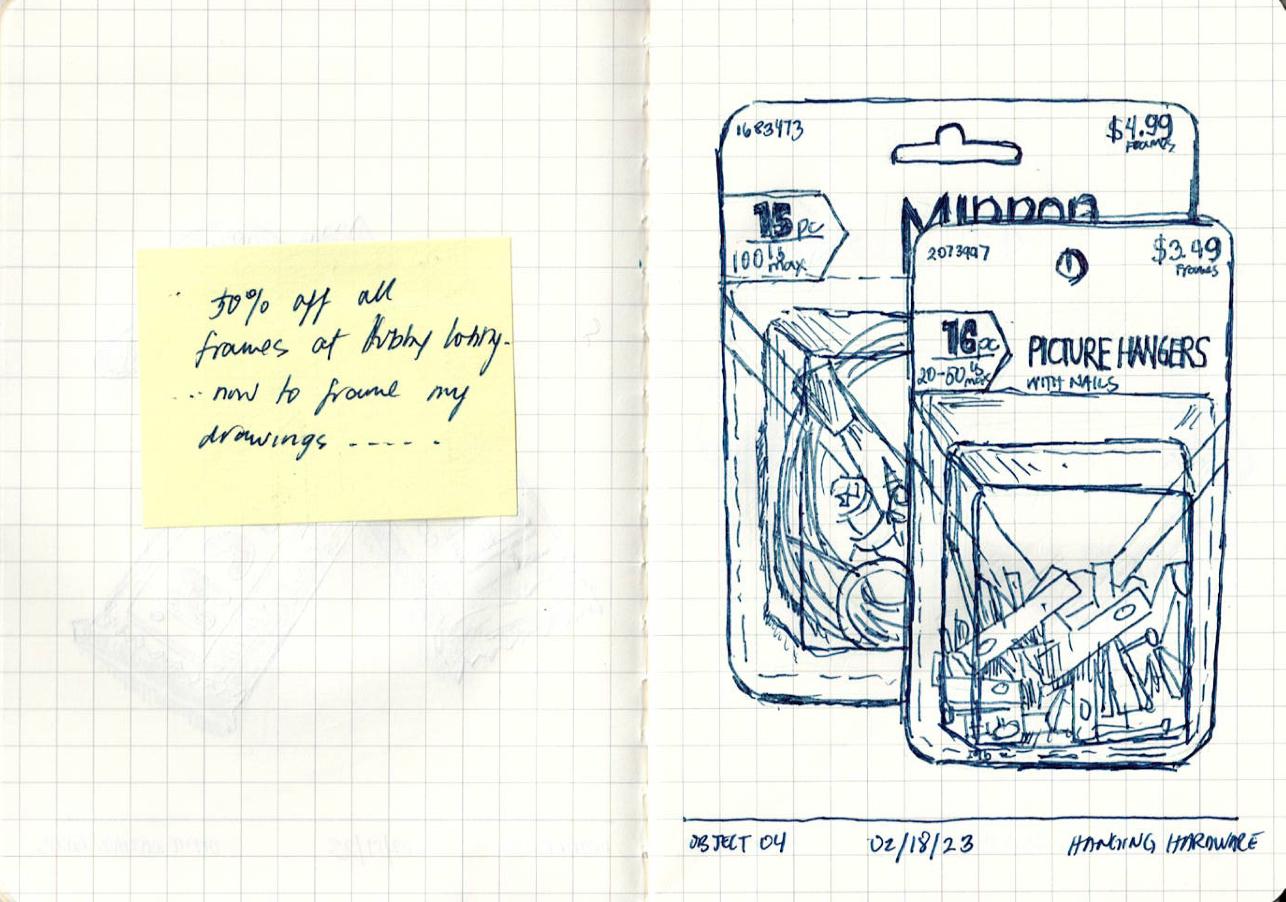 50% off all
frames at Hobby lobby.
... now to frame my
drawings -----.
1683473
$4.99
Frames
15 pc
100 lb max
2073997
$3.49
Frames
16 pc
20-50 lb max
PICTURE HANGERS
WITH NAILS
OBJECT 04 02/18/23 HANGING HARDWARE